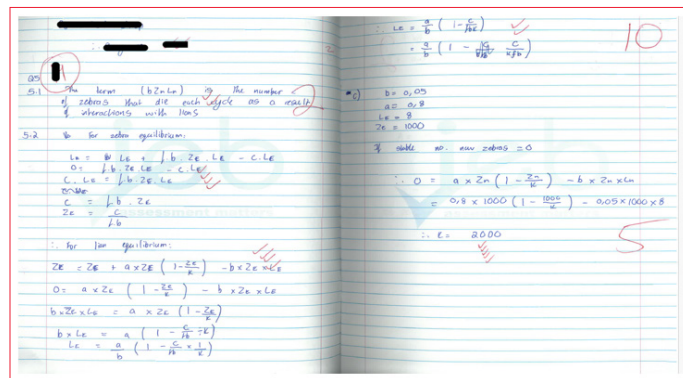 Q5
5.1 The term (bZnLn) is the number
of zebras that die each cycle as a result
of interactions with lions
2
5.2 For zebra equilibrium:
LE = LE + f.b.ZE.LE - c.LE
0 = f.b.ZE.LE - c.LE
c.LE = f.b.ZE.LE
c = f.b.ZE
ZE = c/fb
∴ For lion equilibrium:
ZE = ZE + a×ZE (1 - ZE/K) - b×ZE×LE
0 = a×ZE (1 - ZE/K) - b×ZE×LE
b×ZE×LE = a×ZE (1 - ZE/K)
b×LE = a (1 - c/fb ÷ K)
LE = a/b (1 - c/fb × 1/K)
∴ LE = a/b (1 - c/fbK)
10
c) b = 0,05
a = 0,8
LE = 8
ZE = 1000
If stable no. new zebras = 0
∴ 0 = a × Zn (1 - Zn/K) - b × Zn×Ln
= 0,8 × 1000 (1 - 1000/K) - 0,05×1000×8
∴ K = 2000
5